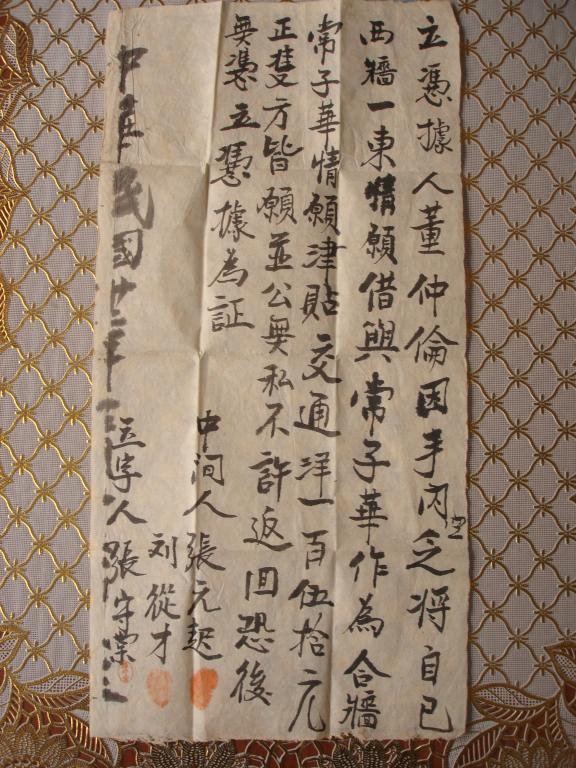 立憑據人董仲倫因手內空乏将自己
西牆一東情願借與常子華作為合牆
常子華情願津貼交通洋一百伍拾元
正雙方皆願並公無私不許返回恐後
無憑立憑據為証
中间人張元起
刘從才
中華民國廿年一
字人張守業